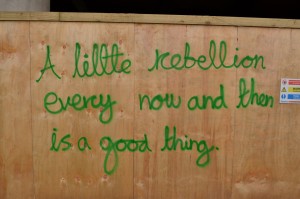 A little rebellion
every now and then
is a good thing.